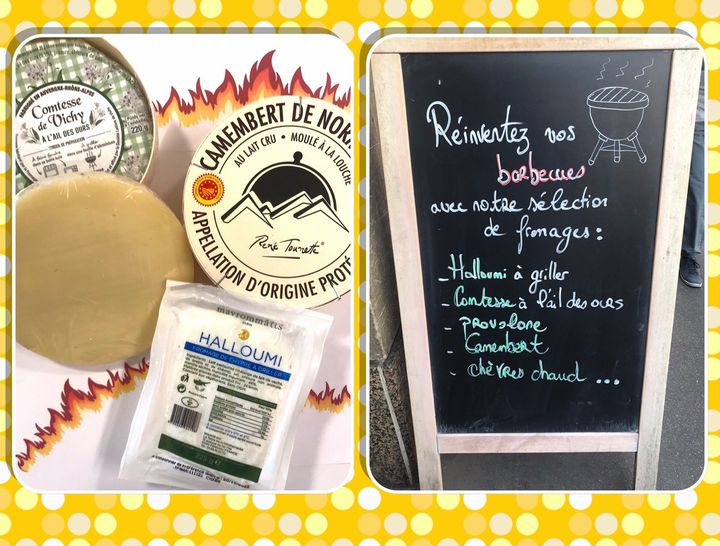 FABRIQUÉ EN AUVERGNE-RHÔNE-ALPES
Comtesse
de Vichy
À L'AIL DES OURS
220 g
CAMEMBERT DE NOR
AU LAIT CRU • MOULÉ À LA LOUCHE
René Tournette
APPELLATION D'ORIGINE PROTÉ
mavrommatis
PARIS
HALLOUMI
FROMAGE DE CHYPRE À GRILLER
Réinventez vos
barbecues
avec notre sélection
de fromages :
- Halloumi à griller
- Comtesse à l'ail des ours
- provolone
- Camembert
- chèvres chaud ...